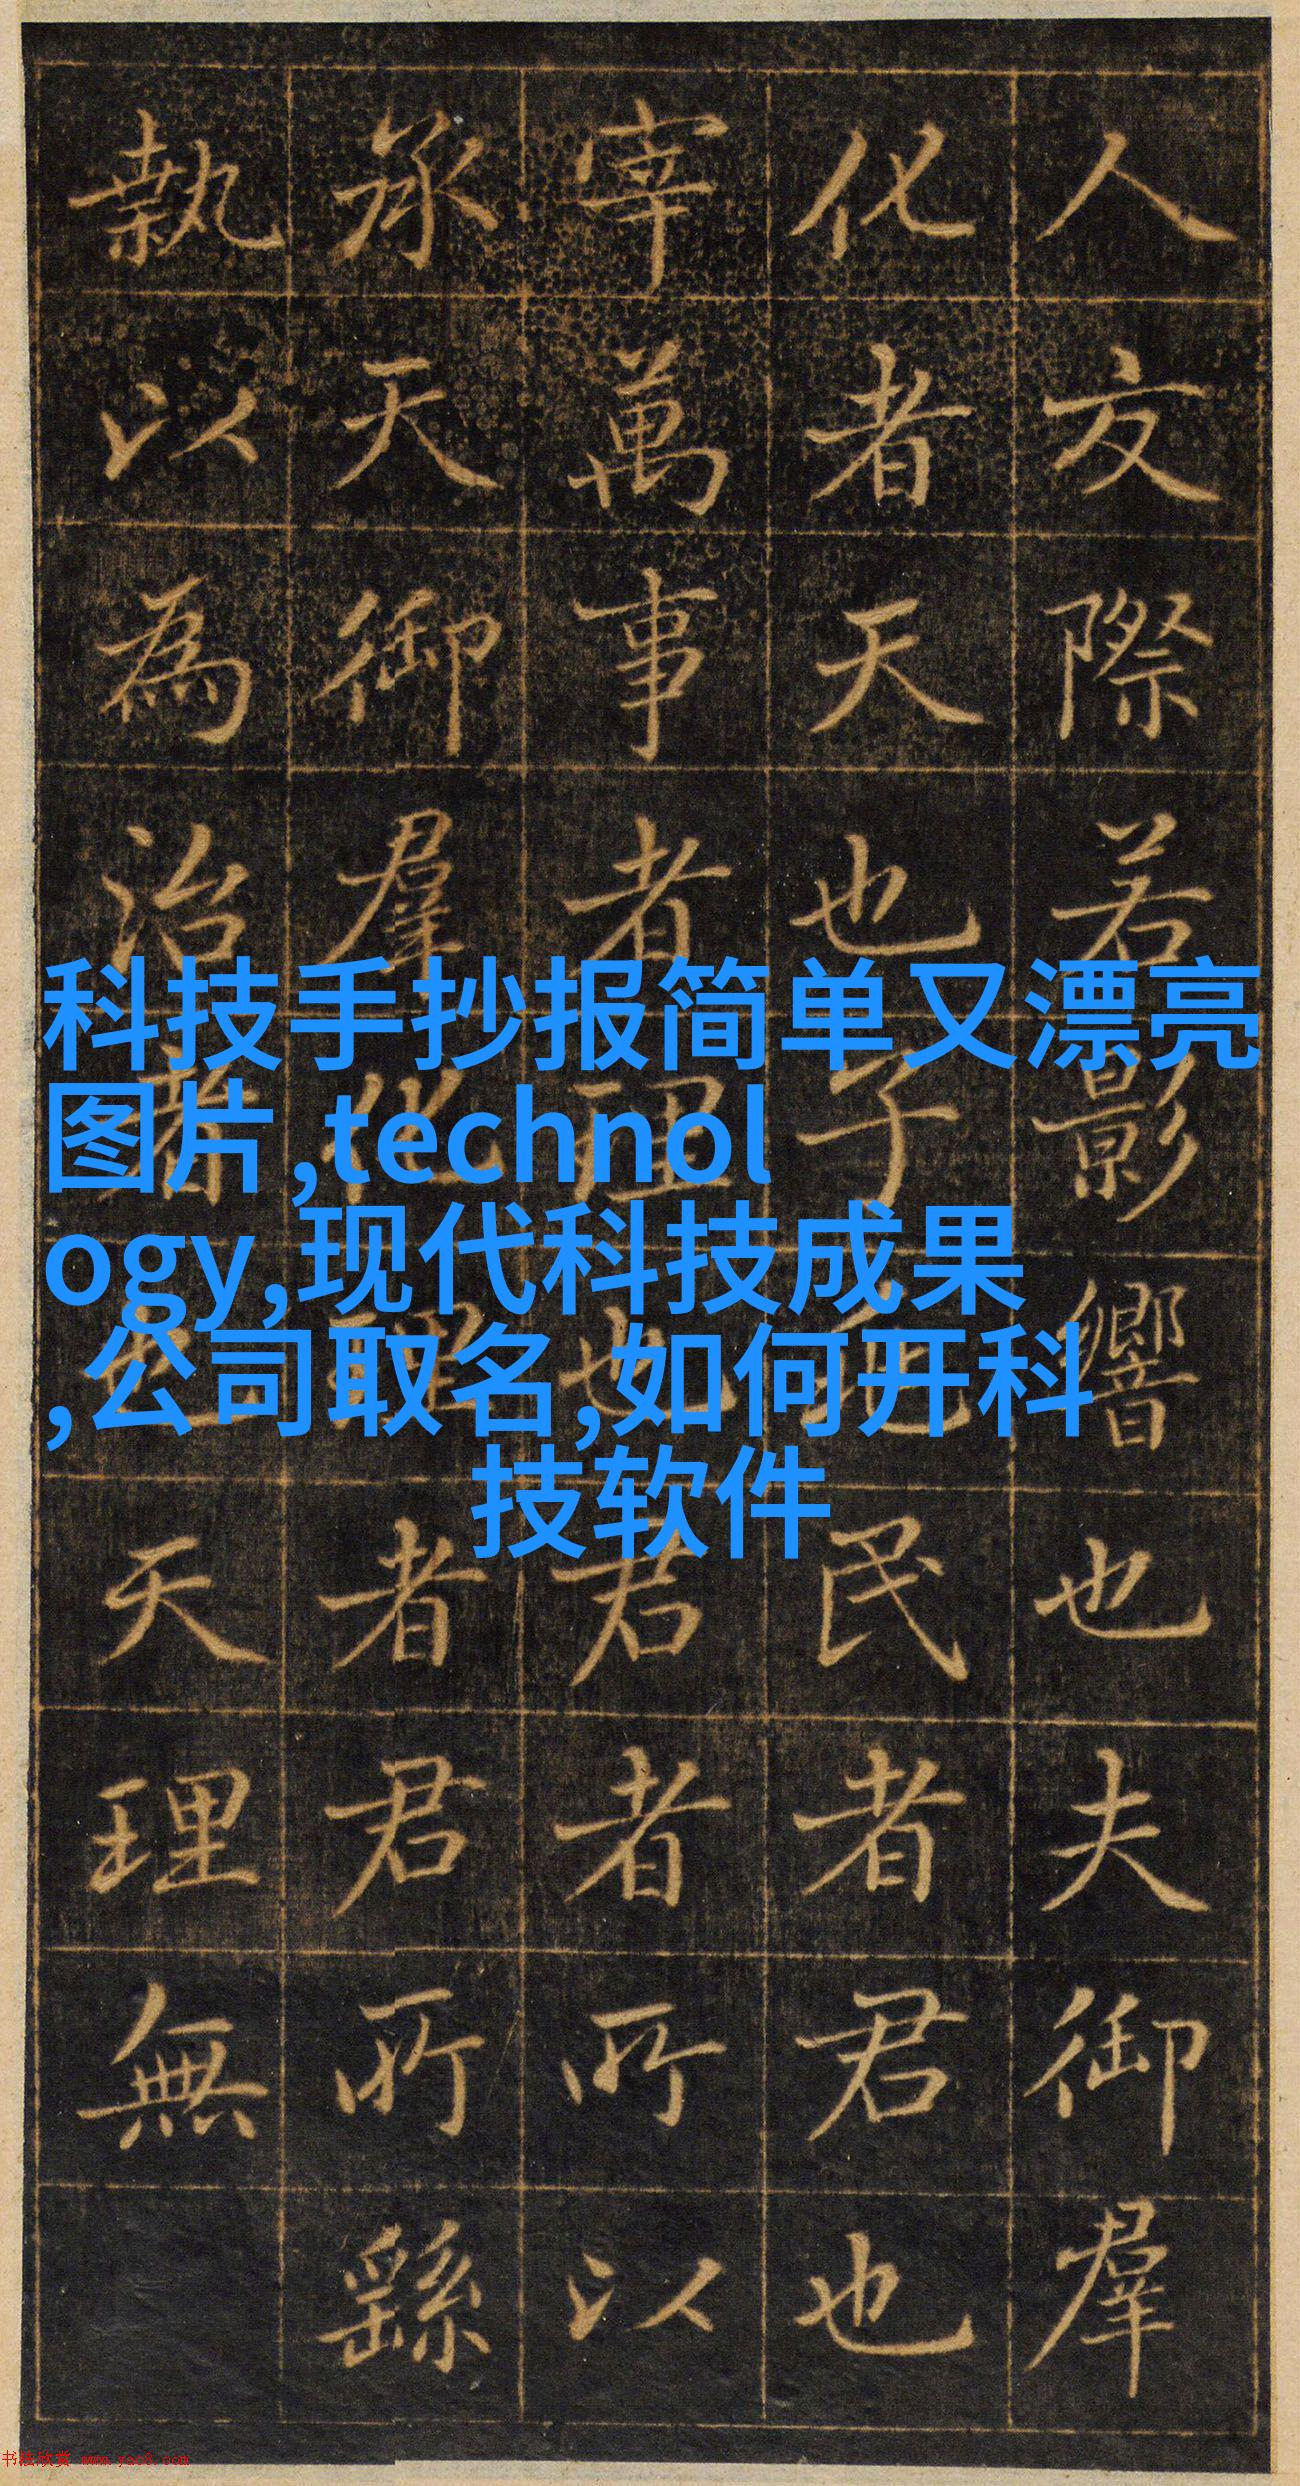 人友際若影響也夫御羣
化者天也子民者君也
宰萬事者也君者所以
承天御羣化理者君所繇
執以為治者天理無
科技手抄报简单又漂亮
图片,technol
ogy,现代科技成果
,公司取名,如何开科
技软件
书法欣赏 www.yac8.com